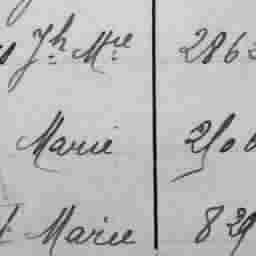 Jh Mie 286
Marie 2500
Marie 829